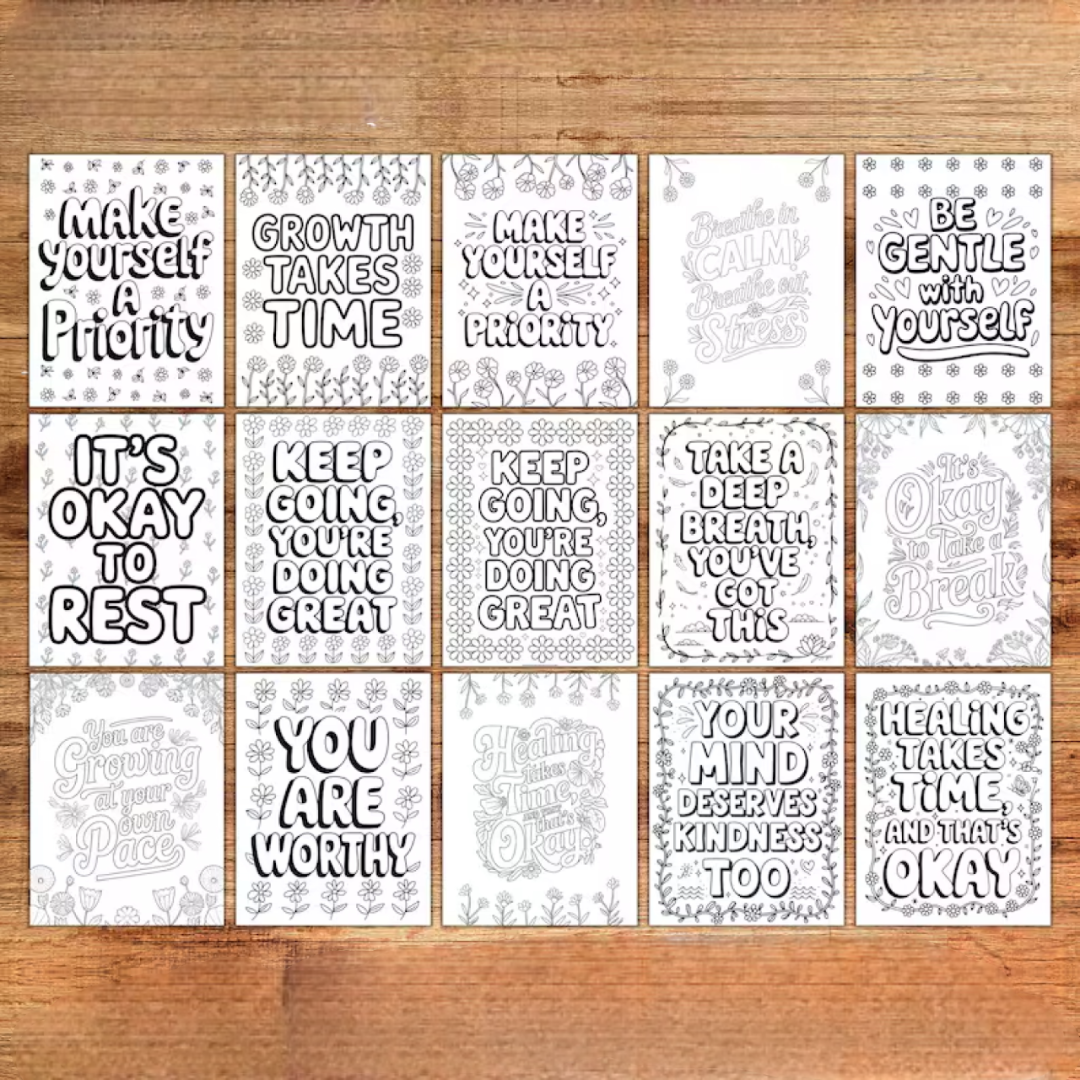 MAKE
yourself
A
Priority
GROWTH
TAKES
TIME
MAKE
YOURSELF
A
PRiORiTY
Breathe in
CALM
Breathe out
Stress
BE
GENTLE
with
yourself
IT'S
OKAY
TO
REST
KEEP
GOING,
YOU'RE
DOING
GREAT
KEEP
GOING,
YOU'RE
DOING
GREAT
TAKE A
DEEP
BREATH,
YOU'VE
GOT
THiS
It's
Okay
to Take a
Break
You are
Growing
at your
own
Pace
YOU
ARE
WORTHY
Healing
takes
Time,
and
that's
Okay
YOUR
MIND
DESERVES
KINDNESS
TOO
HEALiNG
TAKES
TiME,
AND THAT'S
OKAY